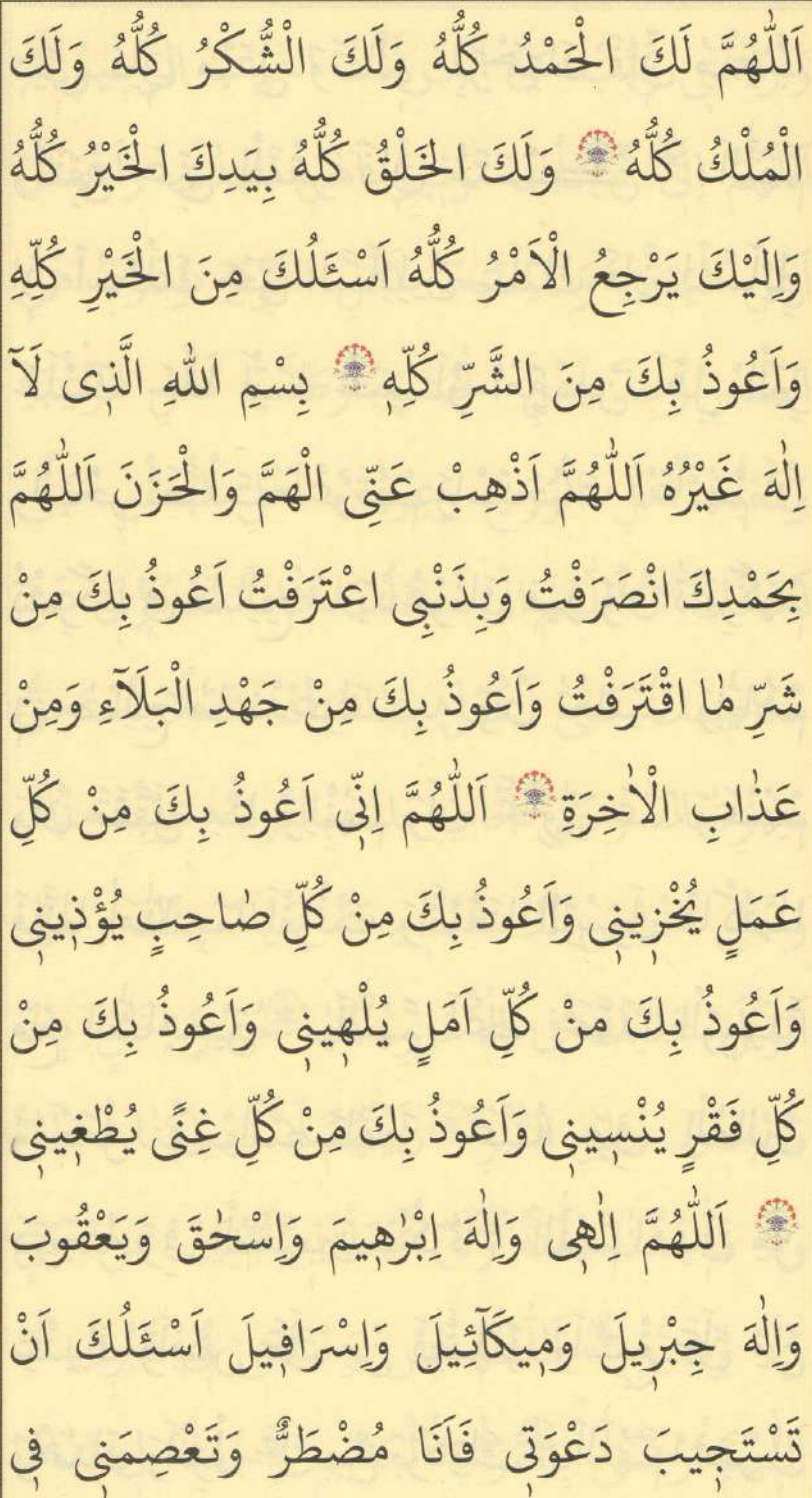 اَللّٰهُمَّ لَكَ الْحَمْدُ كُلُّهُ وَلَكَ الْشُّكْرُ كُلُّهُ وَلَكَ
الْمُلْكُ كُلُّهُ وَلَكَ الْخَلْقُ كُلُّهُ بِيَدِكَ الْخَيْرُ كُلُّهُ
وَاِلَيْكَ يَرْجِعُ الْاَمْرُ كُلُّهُ اَسْئَلُكَ مِنَ الْخَيْرِ كُلِّهِ
وَاَعُوذُ بِكَ مِنَ الشَّرِّ كُلِّهٖ بِسْمِ اللّٰهِ الَّذٖى لَآ
اِلٰهَ غَيْرُهُ اَللّٰهُمَّ اَذْهِبْ عَنِّى الْهَمَّ وَالْحَزَنَ اَللّٰهُمَّ
بِحَمْدِكَ انْصَرَفْتُ وَبِذَنْبِى اعْتَرَفْتُ اَعُوذُ بِكَ مِنْ
شَرِّ مٰا اقْتَرَفْتُ وَاَعُوذُ بِكَ مِنْ جَهْدِ الْبَلَآءِ وَمِنْ
عَذٰابِ الْاٰخِرَةِ اَللّٰهُمَّ اِنّٖى اَعُوذُ بِكَ مِنْ كُلِّ
عَمَلٍ يُخْزٖينٖى وَاَعُوذُ بِكَ مِنْ كُلِّ صٰاحِبٍ يُؤْذٖينٖى
وَاَعُوذُ بِكَ منْ كُلِّ اَمَلٍ يُلْهٖينٖى وَاَعُوذُ بِكَ مِنْ
كُلِّ فَقْرٍ يُنْسٖينٖى وَاَعُوذُ بِكَ مِنْ كُلِّ غِنًى يُطْغٖينٖى
اَللّٰهُمَّ اِلٰهٖى وَاِلٰهَ اِبْرٰهٖيمَ وَاِسْحٰقَ وَيَعْقُوبَ
وَاِلٰهَ جِبْرٖيلَ وَمٖيكَآئِيلَ وَاِسْرَافٖيلَ اَسْئَلُكَ اَنْ
تَسْتَجٖيبَ دَعْوَتٖى فَاَنَا مُضْطَرٌّ وَتَعْصِمَنٖى فٖى